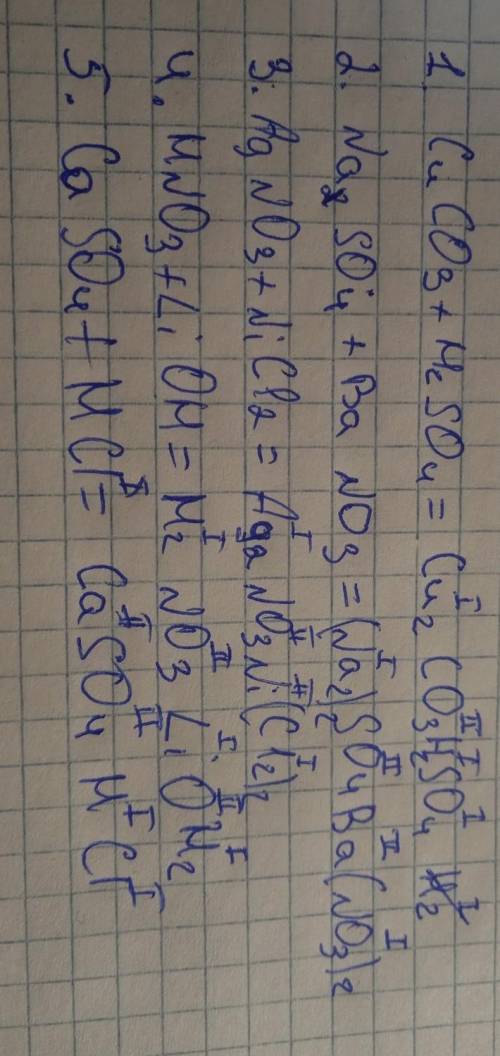 1. CuCO3 + H2SO4 = Cu2 CO3H2SO4 H2
2. Na2 SO4 + Ba NO3 = (Na2)2 SO4 Ba(NO3)2
3. Ag NO3 + NiCl2 = Ag2 NO3Ni(Cl2)2
4. HNO3 + Li OH = H2 NO3 Li OH2
5. Ca SO4 + H Cl = Ca SO4 H Cl